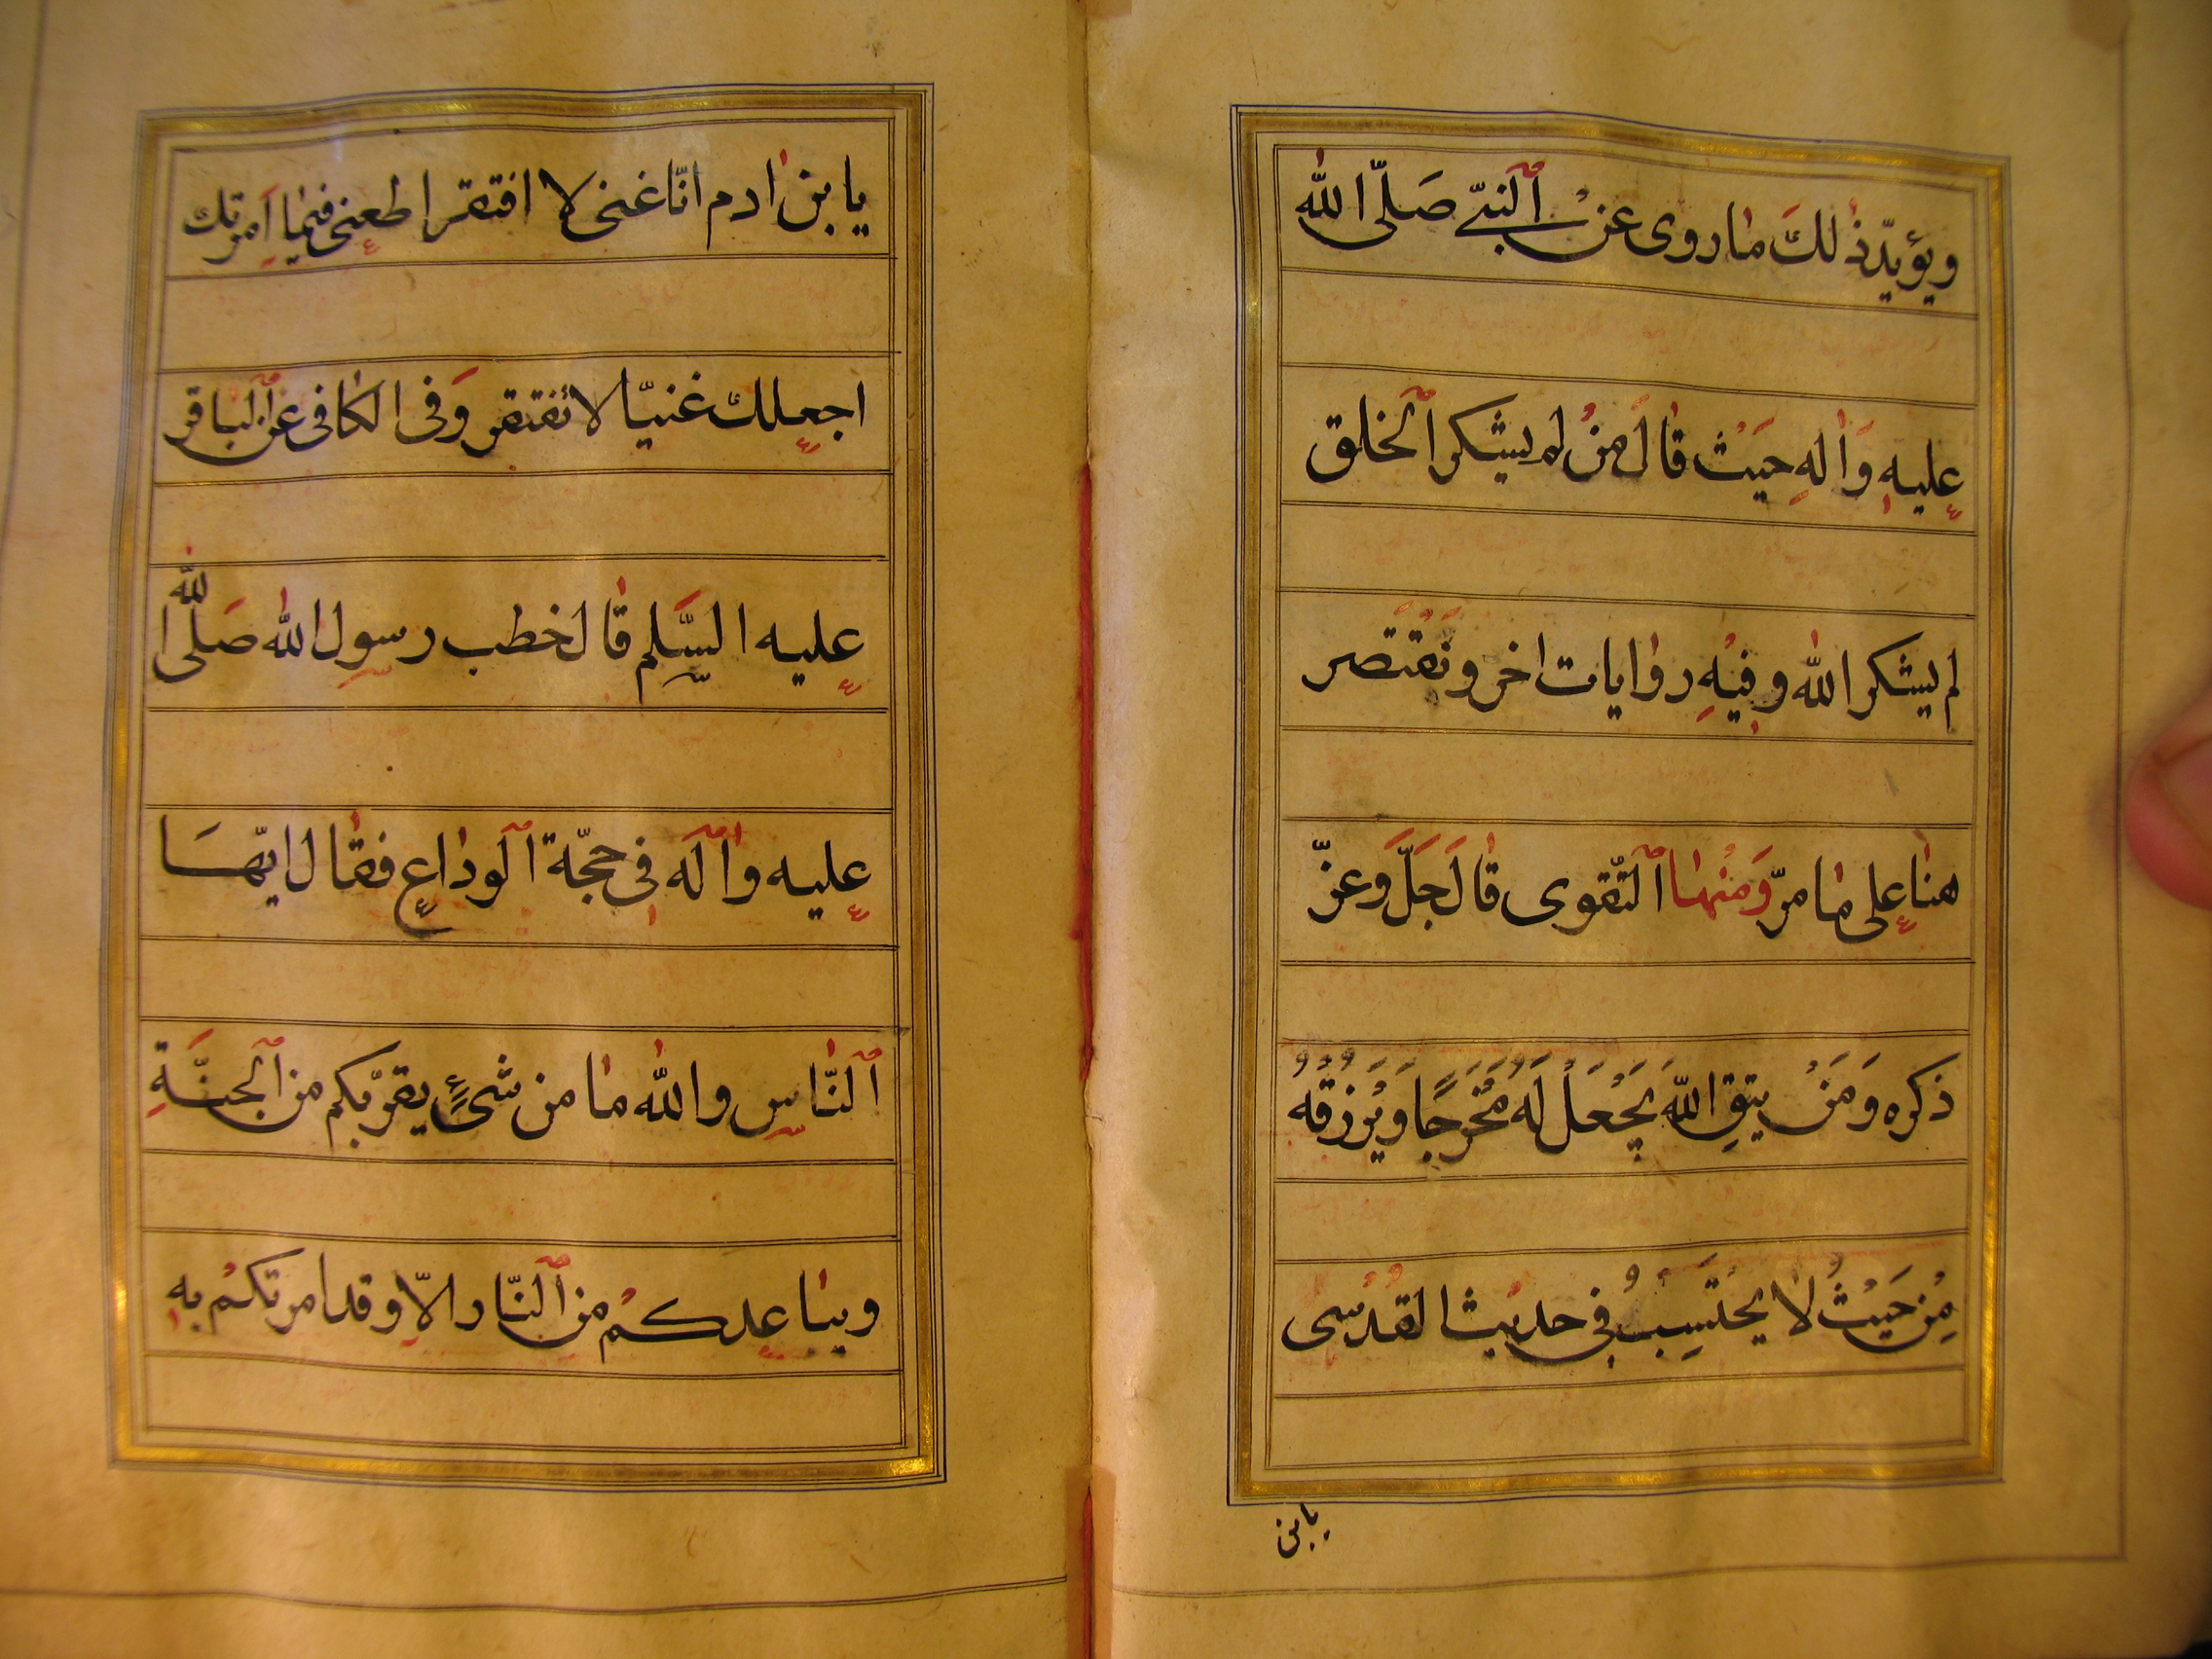 ويؤيّد ذٰلكَ مٰا روى عنْ ٱلنبىّ صَلّى اللّٰه
عليهِ وَاٰلهِ حيَث قٰالَ منْ لم يشكر ٱلخلق
لم يشكر اللّٰه وفيْهِ روٰايات اخر ونَقْتَصر
هنٰا على مٰا مرّ وَمنْهٰا ٱلتّقوى قٰالَ جَلَّ وَعزّ
ذكره وَمَنْ يتقِ اللّٰهَ يَجْعَلْ لَهُ مَخْرَجًا وَيَرْزُقْهُ
مِنْ حَيْثُ لاٰ يحْتَسِبُ فى حديث القدْسُى
يابن
يا بن اٰدم انّا غنى لا افتقر اطعنى فيمٰا اَمرتك
اجعلك غنيّا لا تفتقر وَفى الكٰافى عن ٱلباقر
عليه السَّلم قٰال خطب رسول اللّٰه صَلّى اللّٰه
عليه واٰلٓه فى حجّة ٱلودٰاع فقٰال ايّهَا
ٱلنّٰاس واللّٰه مٰا من شىءٍ يقرّبكم من ٱلجنَّةِ
ويبٰاعدكمْ من ٱلنّار الاّ وقد امرتكمْ به